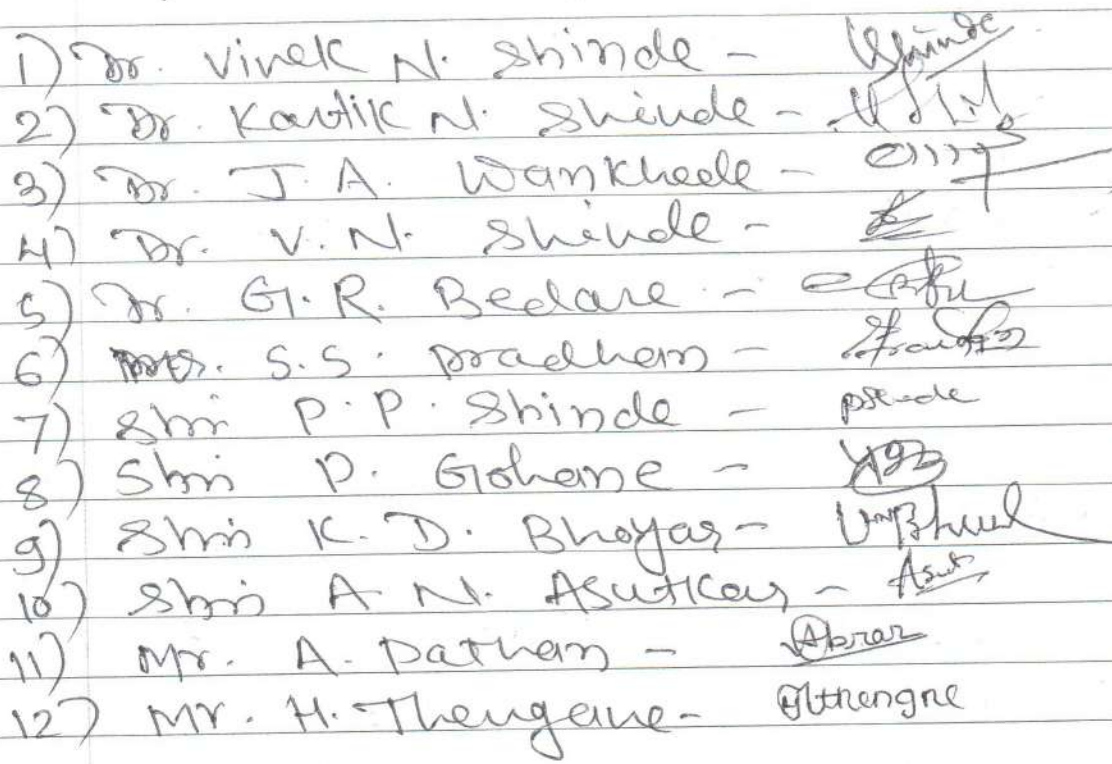 1) Dr. Vivek N. Shinde - Shinde
2) Dr. Kartik N. Shinde -
3) Dr. J. A. Wankhede -
4) Dr. V. N. Shinde -
5) Dr. G. R. Bedare -
6) Mrs. S.S. Pradhan -
7) Shri P. P. Shinde - pshinde
8) Shri P. Gohane -
9) Shri K. D. Bhoyar -
10) Shri A. N. Asutkar - Asut
11) Mr. A. Pathan - Abrar
12) Mr. H. Thengane - Hthengne